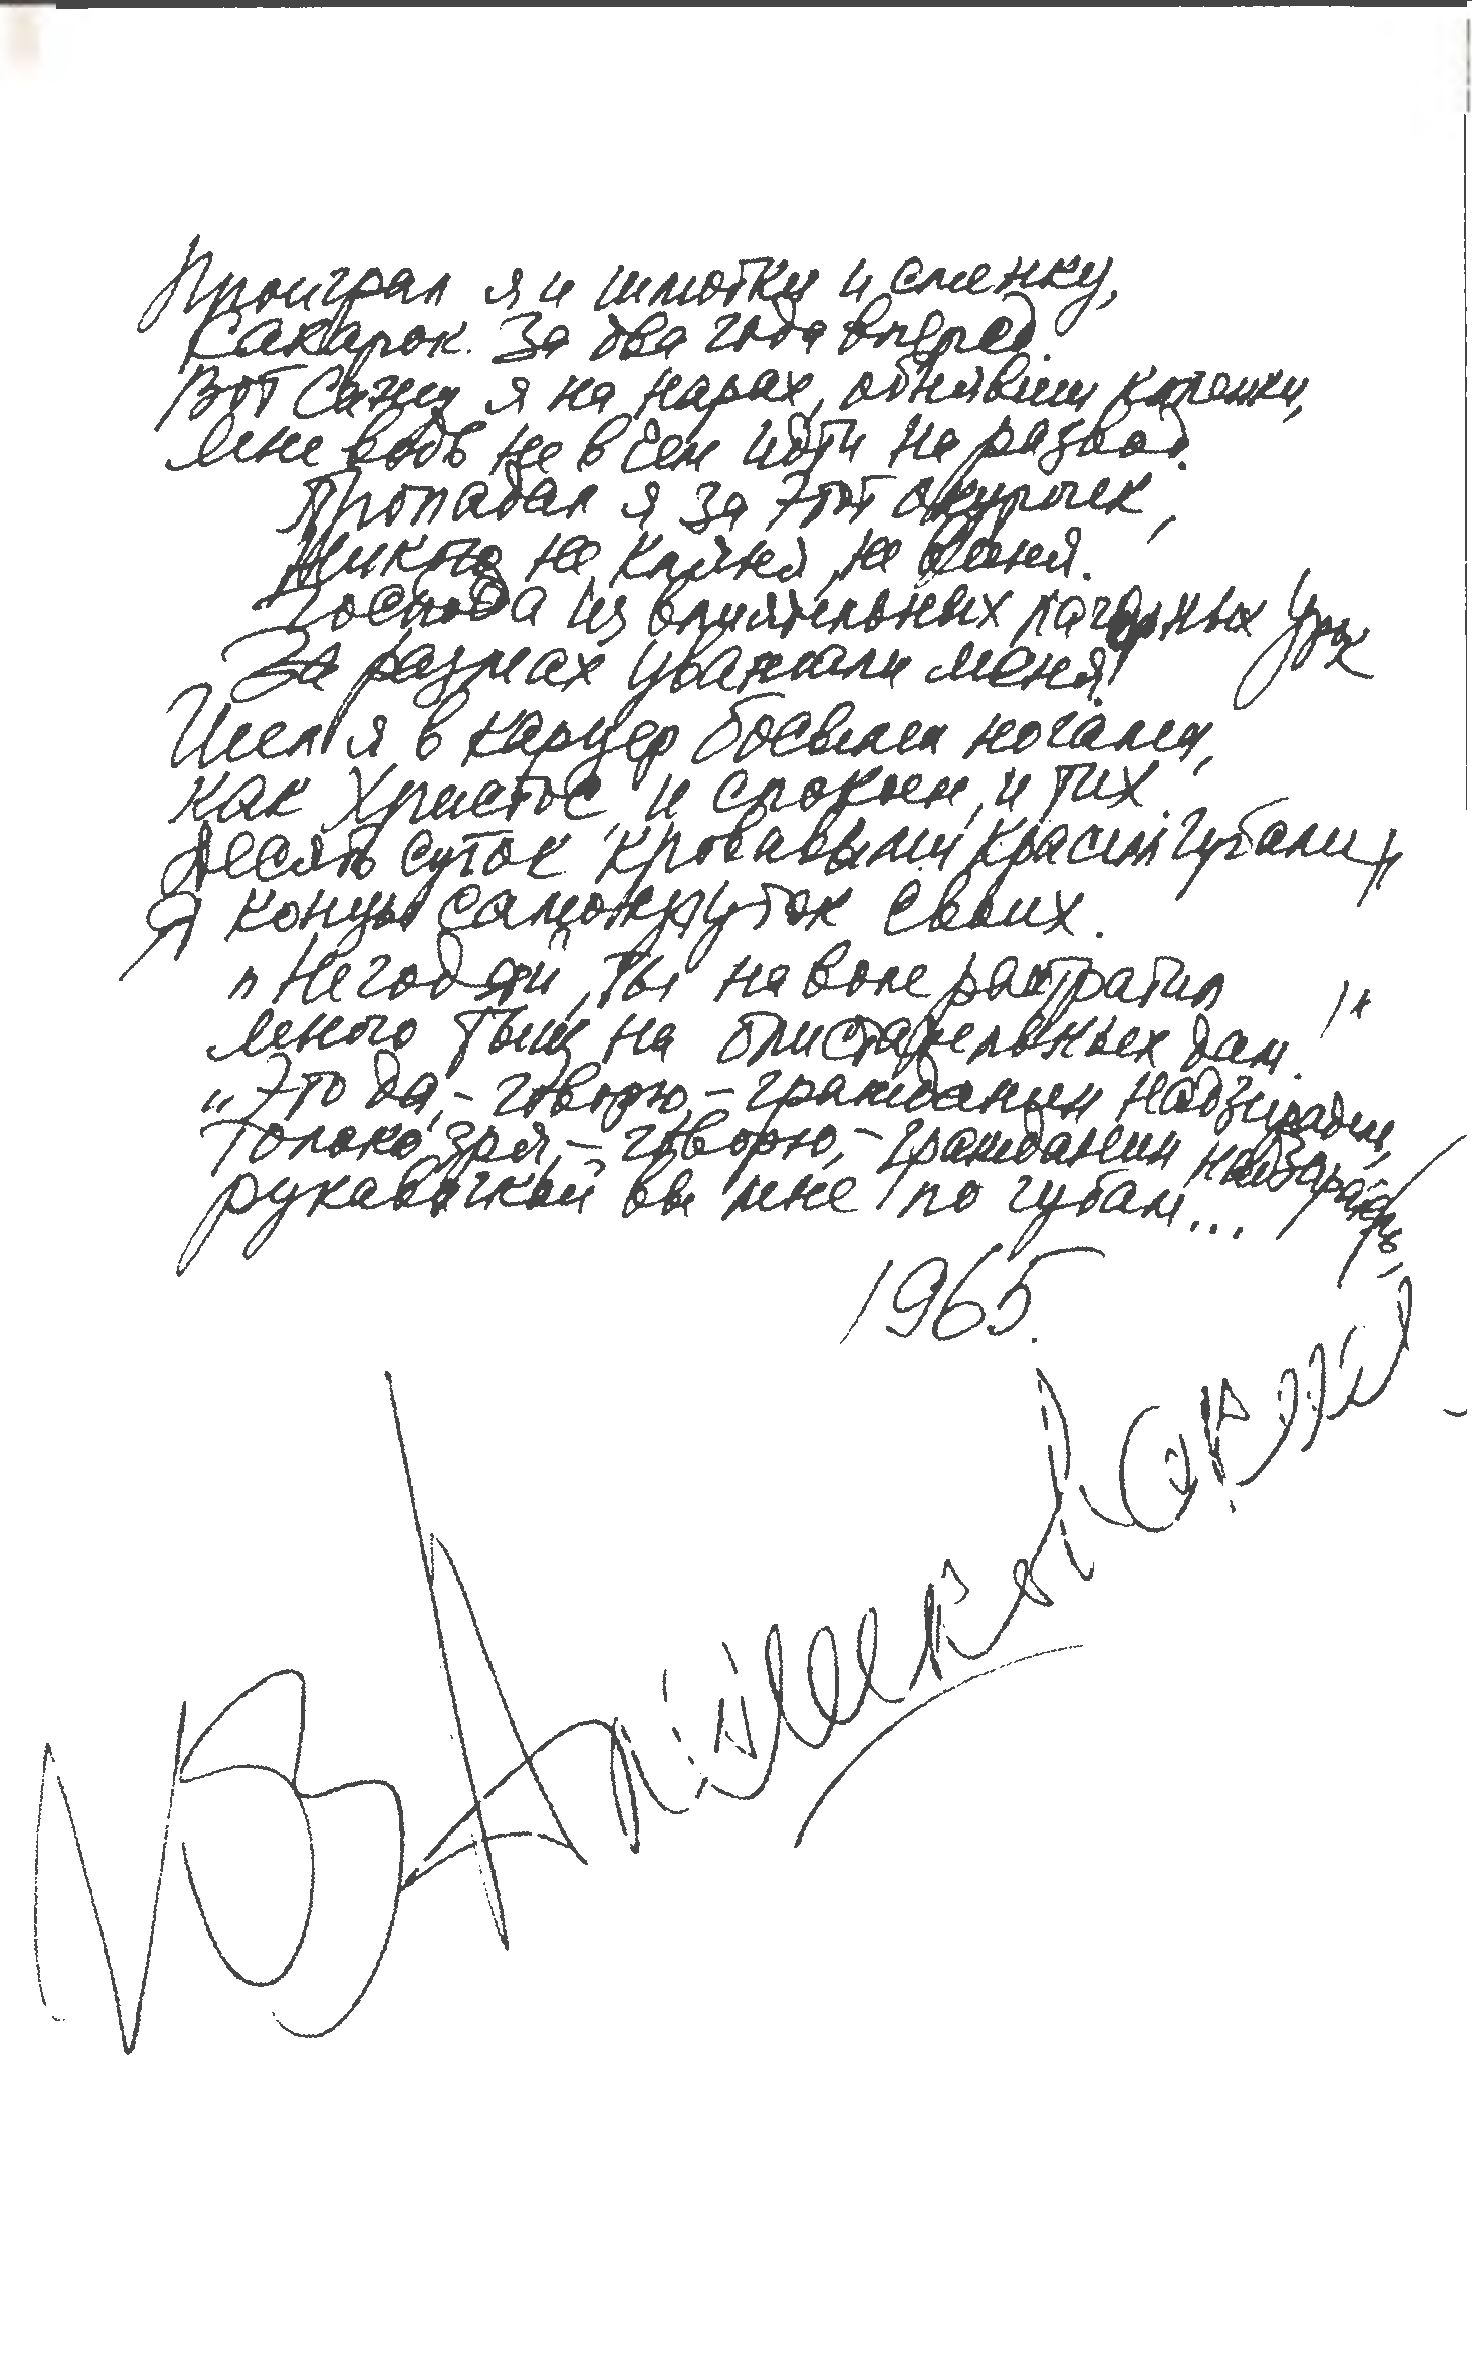 Проиграл я и шмотки и сменку,
Сахарок. За два года вперед.
Вот сижу я на нарах, обнявши коленки,
мне ведь не в чем идти на развод.
Пропадал я за этот окурочек,
Никого не кляня, не виня.
Господа из влиятельных лагерных урок
За размах уважали меня.
Шел я в карцер босыми ногами,
как Христос, и спокоен, и тих.
Десять суток кровавыми красил губами
Я концы самокруток своих.
„Негодяй, ты на воле растратил
много тыщ на блистательных дам!"
„Это да, – говорю, – гражданин надзиратель,
только зря, – говорю, – гражданин надзиратель,
рукавичкой вы мне по губам...
1965.